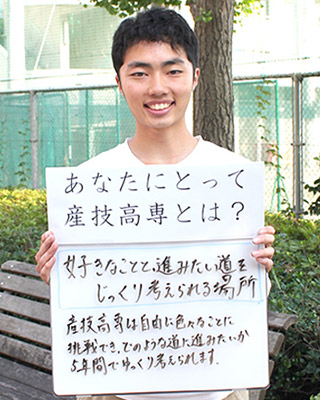 あなたにとって
産技高専とは？
好きなことと、進みたい道を
じっくり考えられる場所
産技高専は自由に色々なことに
挑戦でき、どのような道に進みたいか
5年間でゆっくり考えられます.